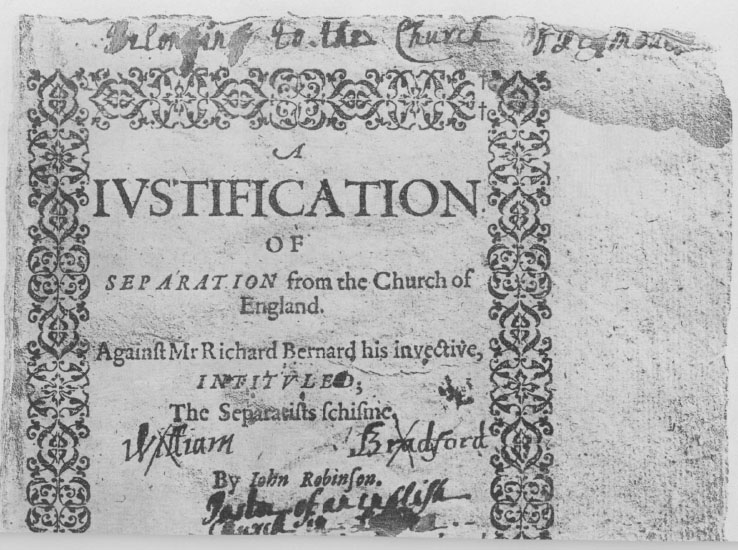 Belonging to the Church of
A
IVSTIFICATION
OF
SEPARATION from the Church of
England.
Againſt Mr Richard Bernard his invective,
INTITVLED;
The Separatiſts ſchiſme.
William Bradford
By Iohn Robinſon.
Paster of an engliſh
Church in